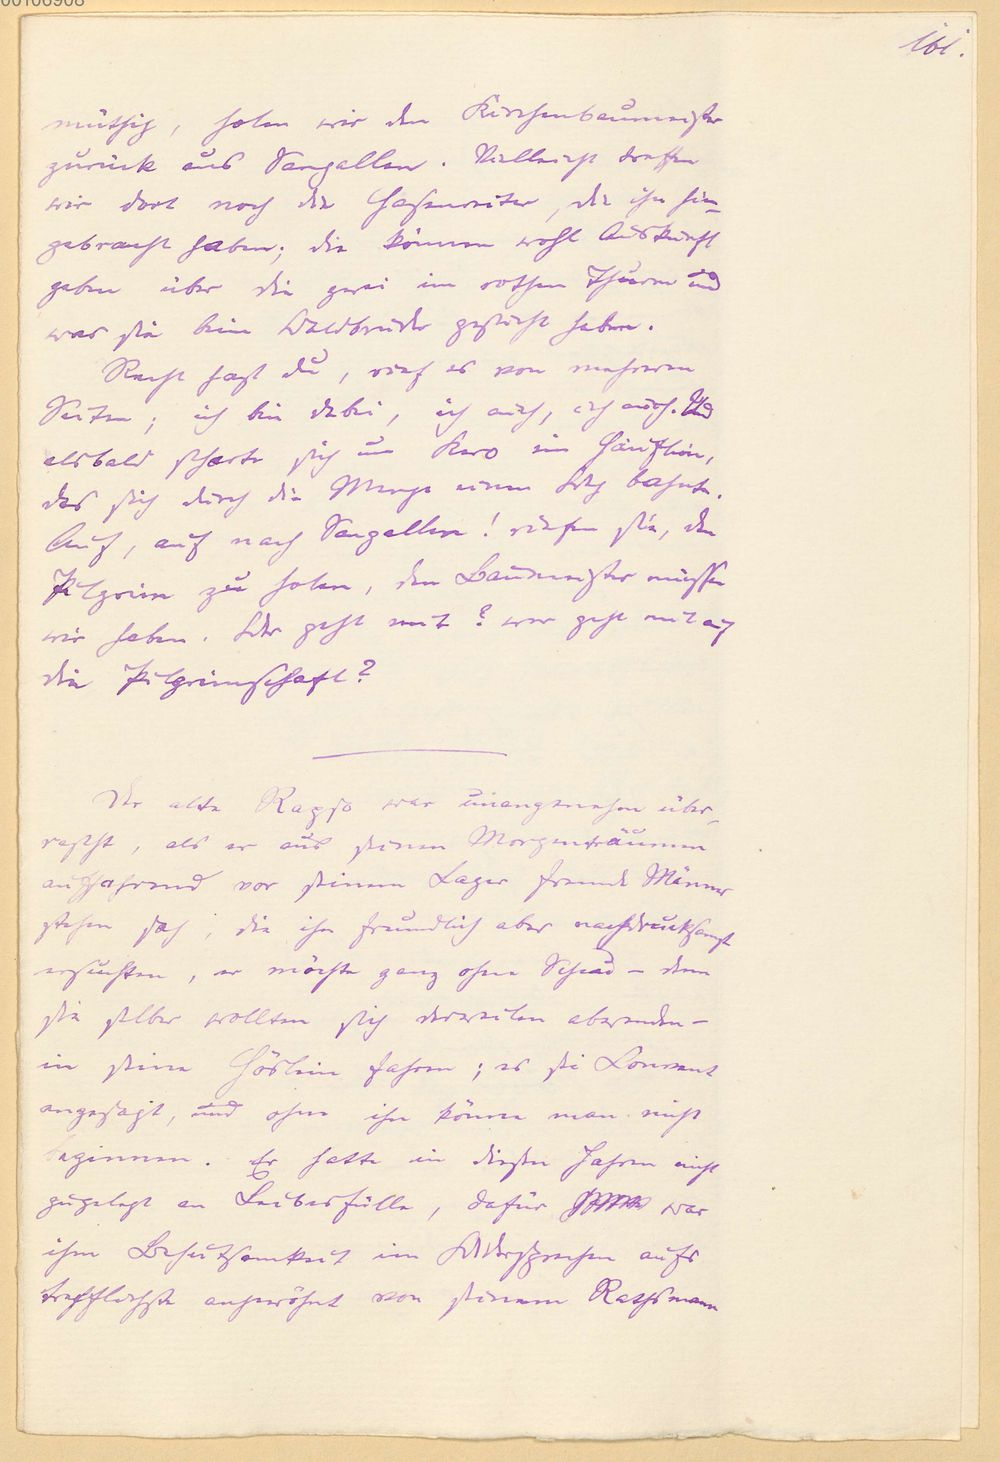 00106908
161.
müthig, holen wir den Kirchenbaumeister
zurück aus Sangallen. Vielleicht treffen
wir dort noch die Hasenreiter, die ihn hin-
gebracht haben; die können wohl Auskunft
geben über die zwei im rothen Thurm und
was sie beim Waldbruder gesucht haben.
Recht hast du, rief es von mehreren
Seiten; ich bin dabei, ich auch, ich auch. Und
alsbald scharte sich um Kero ein Häuflein,
das sich durch die Menge einen Weg bahnte.
Auf, auf nach Sangallen! riefen sie, den
Pilgrim zu holen, den Baumeister müssen
wir haben. Wer geht mit? wer geht mit auf
die Pilgrimschaft?
Der alte Rapso war unangenehm über-
rascht, als er aus seinen Morgenträumen
auffahrend vor seinem Lager fremde Männer
stehen sah, die ihn freundlich aber nachdrucksamst
ersuchten, er möchte ganz ohne Scheu – denn
sie selber wollten sich derweilen abwenden –
in seine Höslein fahren; es sei Convent
angesagt, und ohne ihn könne man nicht
beginnen. Er hatte in diesen Jahren nicht
zugelegt an Leibesfülle, dafür war
ihm Behutsamkeit im Widersprechen aufs
trefflichste angewöhnt von seinem Rathsmann